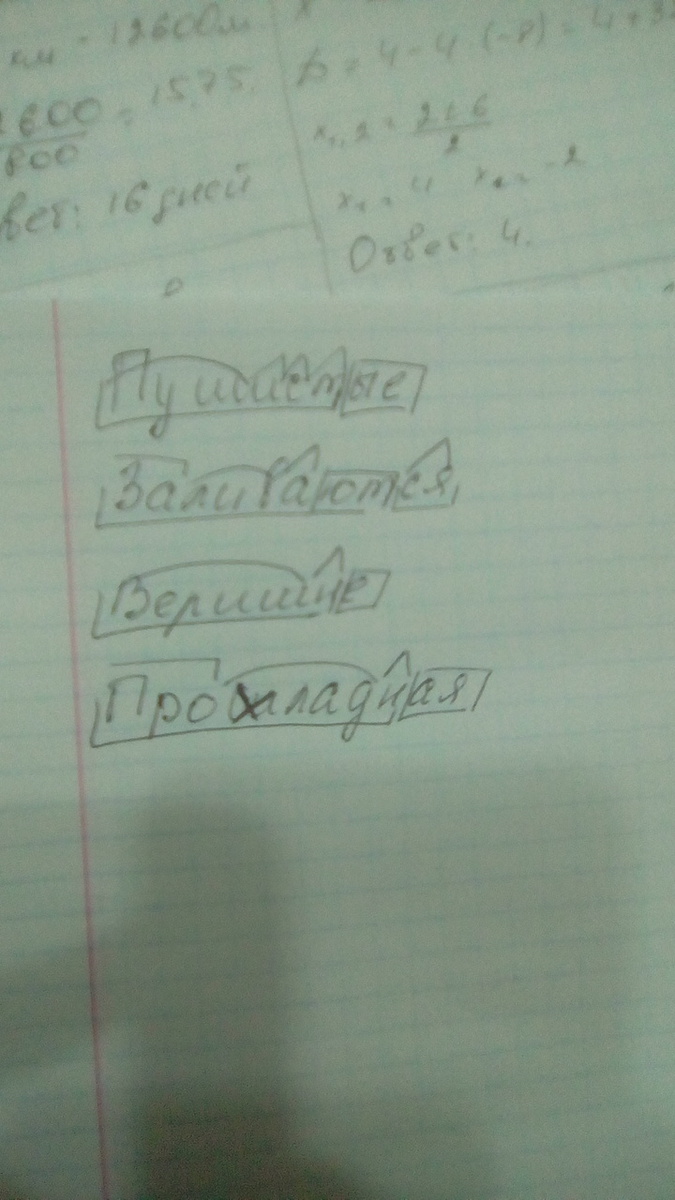 км = 12600м
= 15,75.
800
вет: 16 дней
D = 4 - 4 (-8) = 4 + 3
x₁,₂ = 2±6
2
x₁ = 4 x₂ = -2
Ответ: 4.
Пушистые
Заливаются
Вершине
Прохладная